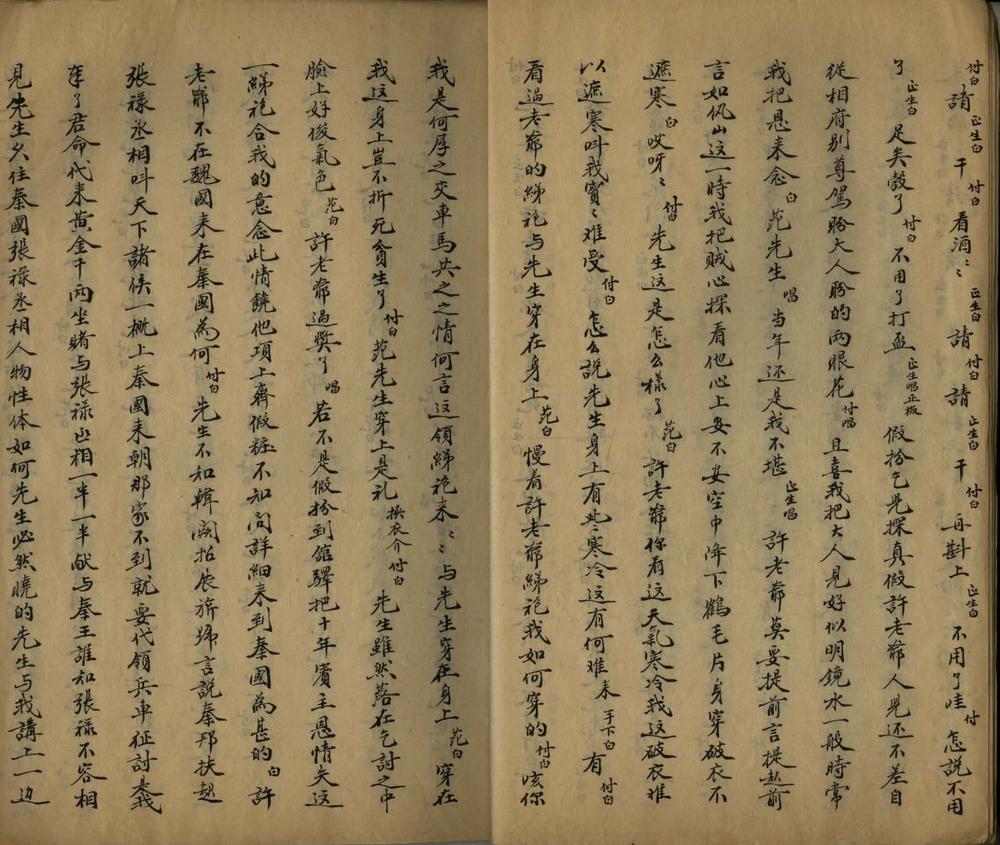 付白請正生白干付白看酒〻正生白請付白請正生白干付白再斟上正生白不用了哇付怎説不用
了正生白足矣彀了付白不用了打盃正生唱正板假扮乞児探真假許老爺人児还不差自
從相府别尊駕盼大人盼的两眼花付唱且喜我把大人見好似明鏡水一般時常
我把恩来念白范先生唱当年还是我不堪正生唱許老爺莫要提前言提起前
言如仇山这一時我把贼心探看他心上安不安空中降下鶴毛片身穿破衣不
遮寒白哎呀〻付白先生这是怎么樣了范白許老爺你看这天氣寒冷我这破衣难
以遮寒呌我實〻难受付白怎么說先生身上有些〻寒冷这有何难来手下白有付白
看过老爺的綈袍与先生穿在身上范白慢着許老爺綈袍我如何穿的付白咳你
我是何厚之交車馬共之之情何言这領綈袍来〻与先生穿在身上范白穿在
我这身上豈不折死貧生了付白范先生穿上是礼换衣介付白先生雖然落在乞討之中
臉上好俊氣色范白許老爺過奬了唱若不是假扮到舘驛把十年賓主恩情失这
一綈袍合我的意念此情饒他項上齊假粧不知问詳細来到秦國為甚的白許
老爺不在魏國来在秦國為何付白先生不知韓阙拍展旂婦言説秦邦扶起
張禄丞相呌天下諸侯一概上秦國来朝那家不到就要代領兵車征討来我
奉了君命代来黄金千两坐賭与張禄丞相一半一半献与秦王誰知張禄不容相
見先生久住秦國張禄丞相人物性体如何先生必然曉的先生与我講上一边